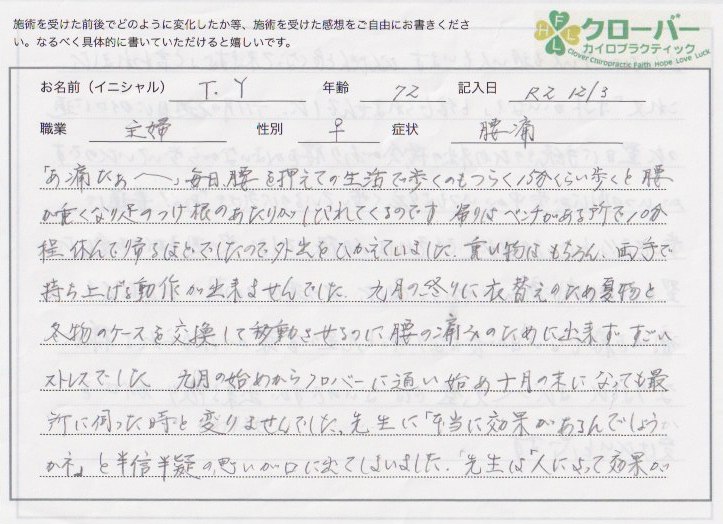 施術を受けた前後でどのように変化したか等、施術を受けた感想をご自由にお書きくださ
い。なるべく具体的に書いていただけると嬉しいです。
FHLL
クローバー
カイロプラクティック
Clover Chiropractic Faith Hope Love Luck
お名前（イニシャル） T.Y 年齢 72 記入日 R2 12/3
職業 主婦 性別 女 症状 腰痛
「あ痛たぁ〜」毎日腰を押えての生活で歩くのもつらく15分くらい歩くと腰
が重くなり足のつけ根のあたりがしびれてくるのです 帰りはベンチがある所で10分
程休んで帰るほどでしたので外出をひかえていました。重い物はもちろん、両手で
持ち上げる動作が出来ませんでした。九月の終りに衣替えのため夏物と
冬物のケースを交換して移動させるのに腰の痛みのために出来ず すごい
ストレスでした 九月の始めからクローバーに通い始め十月の末になっても最
所に伺った時と変りませんでした。先生に「本当に効果があるんでしょう
かネ」と半信半疑の思いが口に出てしまいました。「先生は「人によって効果が